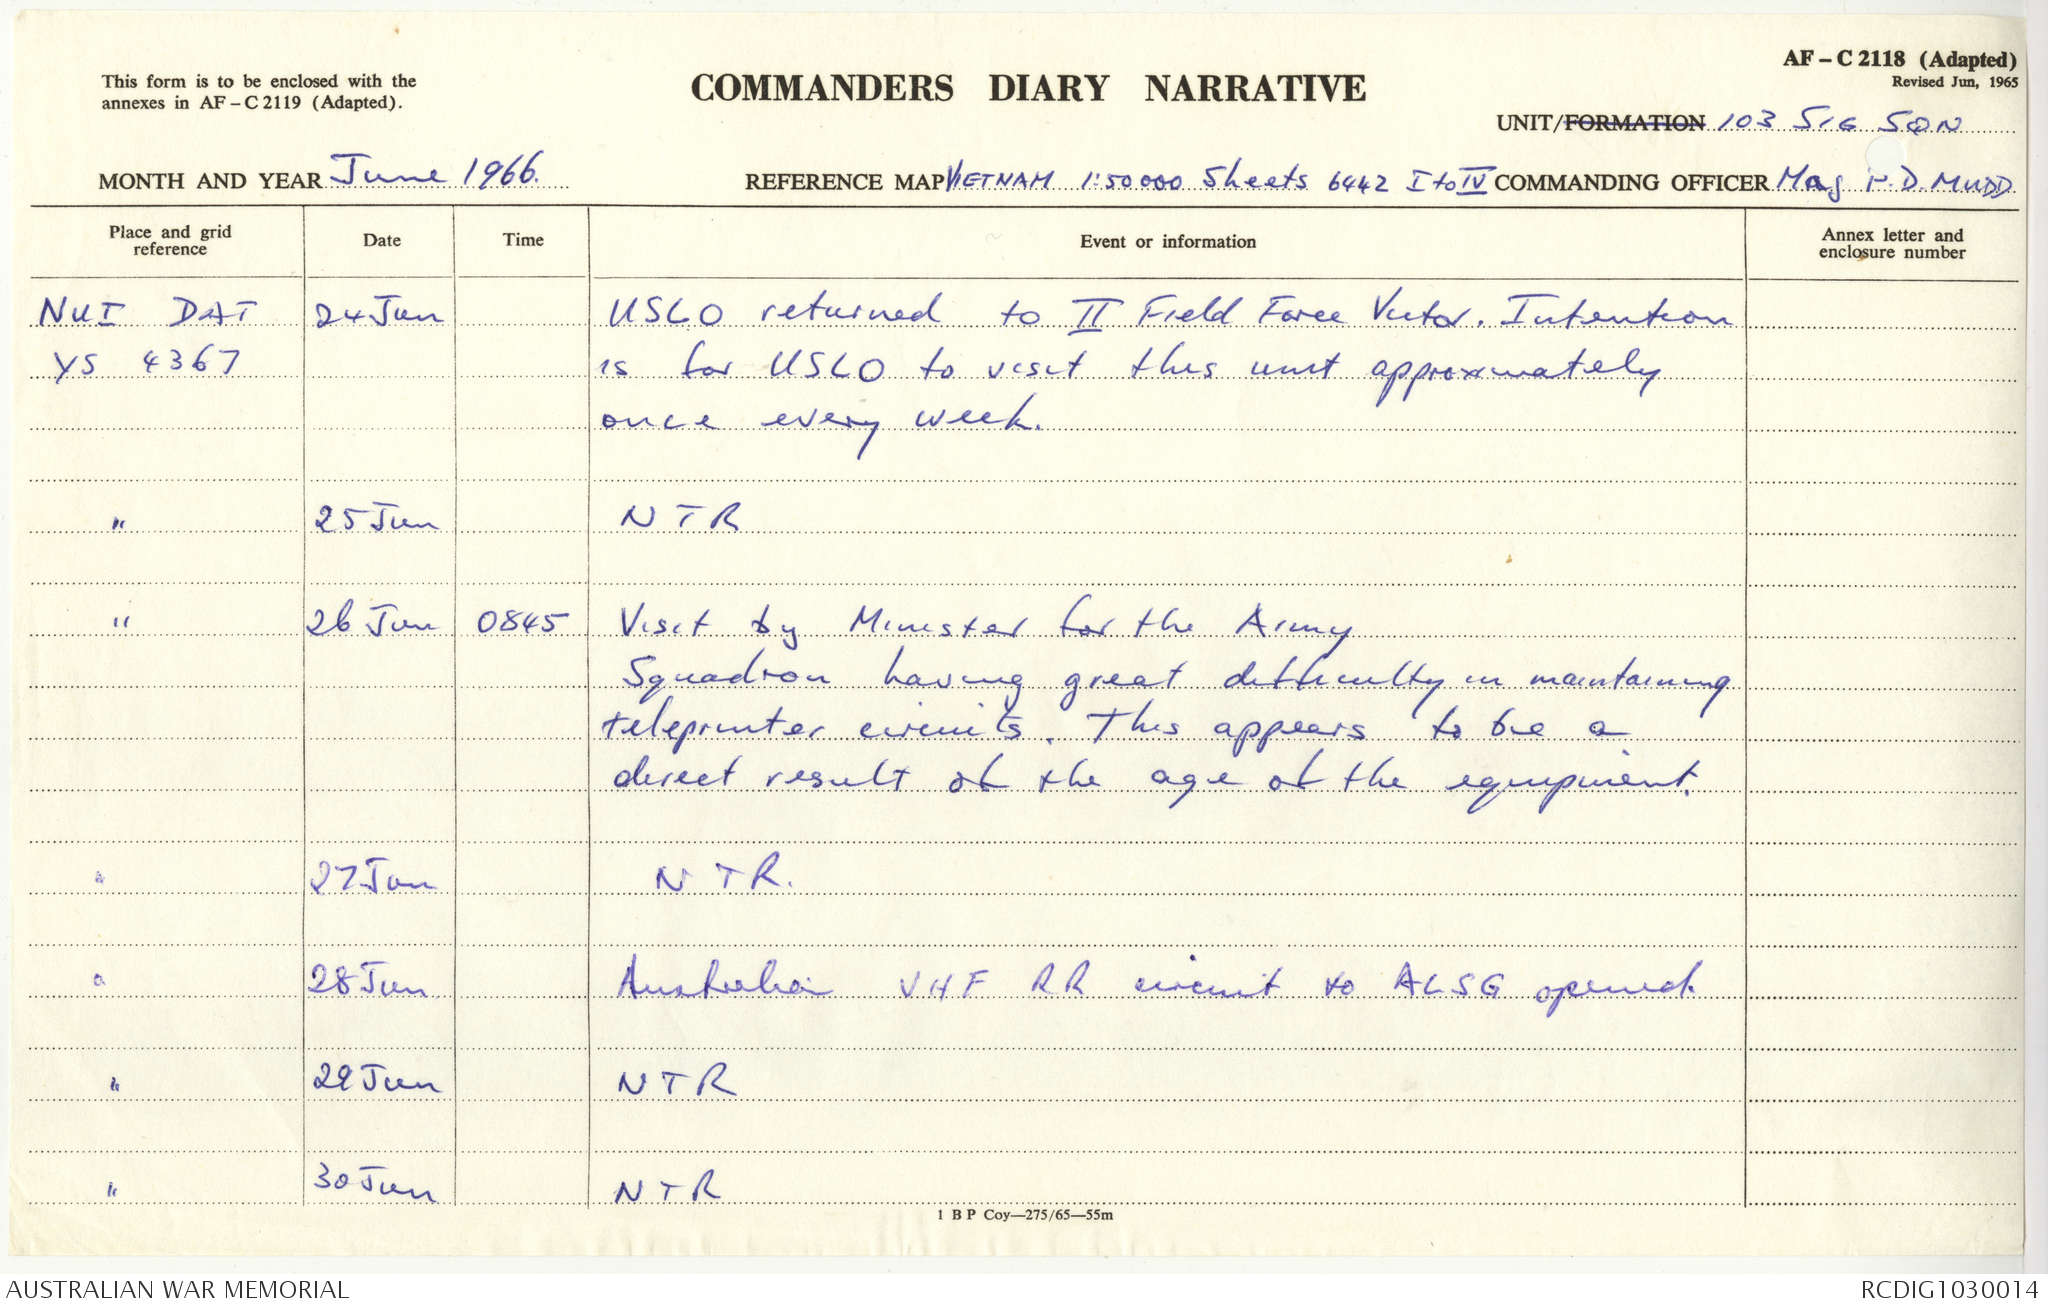 AF – C 2118 (Adapted)
Revised Jun, 1965
This form is to be enclosed with the
annexes in AF – C 2119 (Adapted).
COMMANDERS DIARY NARRATIVE
UNIT/FORMATION 103 SIG SQN
MONTH AND YEAR June 1966.
REFERENCE MAP VIETNAM 1:50000 Sheets 6442 I to IV
COMMANDING OFFICER Maj P.D. MUDD
Place and grid reference Date Time Event or information Annex letter and enclosure number
NUI DAT 24 Jun USLO returned to II Field Force Victor. Intention
YS 4367 is for USLO to visit this unit approximately
once every week.
" 25 Jun NTR
" 26 Jun 0845 Visit by Minister for the Army
Squadron having great difficulty in maintaining
teleprinter circuits. This appears to be a
direct result of the age of the equipment.
" 27 Jun NTR.
" 28 Jun Australian VHF RR circuit to ALSG opened.
" 29 Jun NTR
" 30 Jun NTR
1 B P Coy—275/65—55m
AUSTRALIAN WAR MEMORIAL
RCDIG1030014